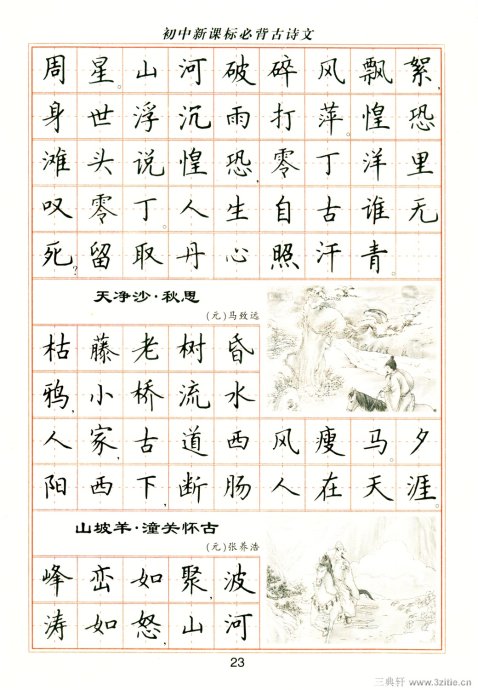 初中新课标必背古诗文
周星。山河破碎风飘絮,
身世浮沉雨打萍。惶恐
滩头说惶恐,零丁洋里
叹零丁。人生自古谁无
死?留取丹心照汗青。
天净沙·秋思
(元)马致远
枯藤老树昏
鸦,小桥流水
人家,古道西风瘦马。夕
阳西下,断肠人在天涯。
山坡羊·潼关怀古
(元)张养浩
峰峦如聚,波
涛如怒,山河
23
三典轩 www.3zitie.cn